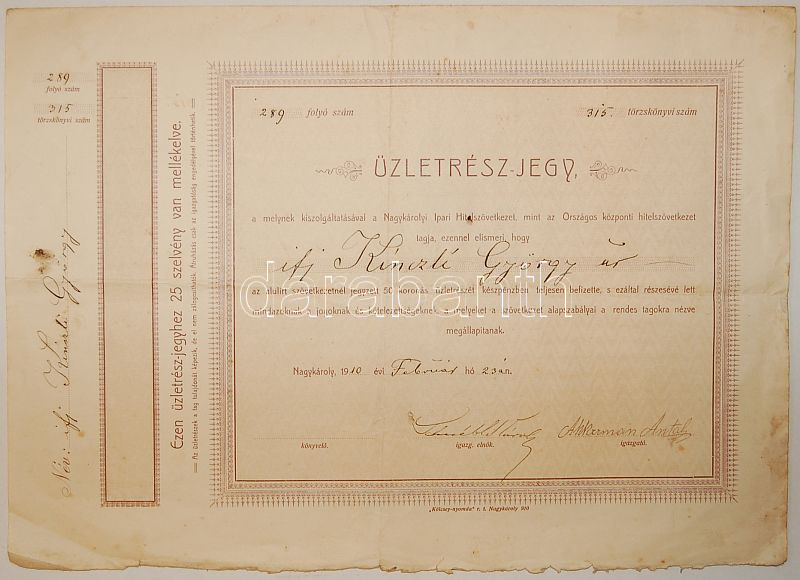 289
folyó szám
315
törzskönyvi szám
Név: ifj Kinczli György
Ezen üzletrész-jegyhez 25 szelvény van mellékelve.
Az üzletrészek a tag tulajdonát képezik, de el nem zálogosithatók. Átruházás csak az igazgatóság engedélyével történhetik.
289 folyó szám
315. törzskönyvi szám
ÜZLETRÉSZ-JEGY,
a melynek kiszolgáltatásával a Nagykárolyi Ipari Hitelszövetkezet, mint az Országos központi hitelszövetkezet
tagja, ezennel elismeri, hogy
ifj Kinczli György úr
az alulirt szövetkezetnél jegyzett 50 koronás üzletrészét készpénzben teljesen befizette, s ezáltal részesévé lett
mindazoknak a jogoknak és kötelezettségeknek, a melyeket a szövetkezet alapszabályai a rendes tagokra nézve
megállapitanak.
Nagykároly, 1910 évi Február hó 23án.
Akkerman Antal
könyvelő.
igazg. elnök.
igazgató.
„Kölcsey-nyomda" r. t. Nagykároly 910
darabanth